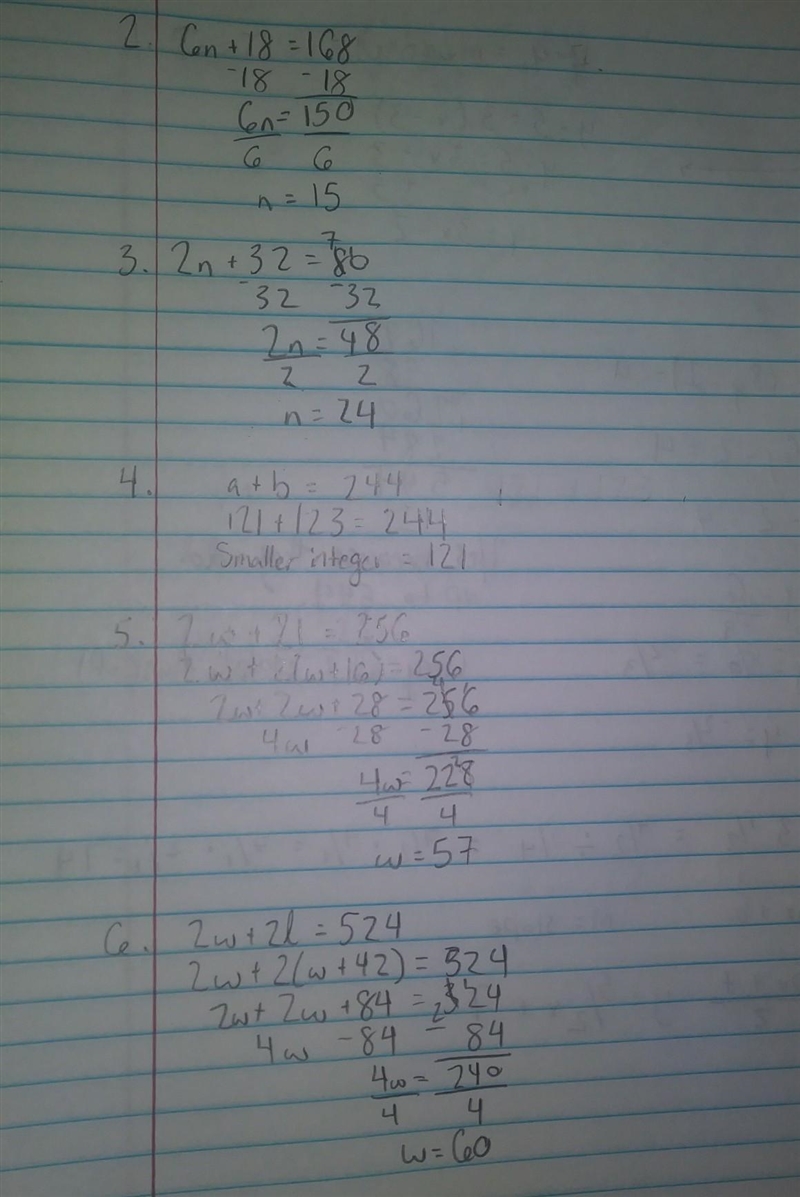 2. 6n + 18 = 168
-18 -18
6n = 150
6 6
n = 15
3. 2n + 32 = 7 80
-32 -32
2n = 48
2 2
n = 24
4. a + b = 244
121 + 123 = 244
Smaller integer = 121
5. 2w + 2l = 256
2w + 2(w + 16) = 256
2w + 2w + 28 = 256
4w 28 -28
4w = 228
4 4
w = 57
6. 2w + 2l = 524
2w + 2(w + 42) = 324
2w + 2w + 84 = 324
4w - 84 - 84
4w = 240
4 4
w = 60